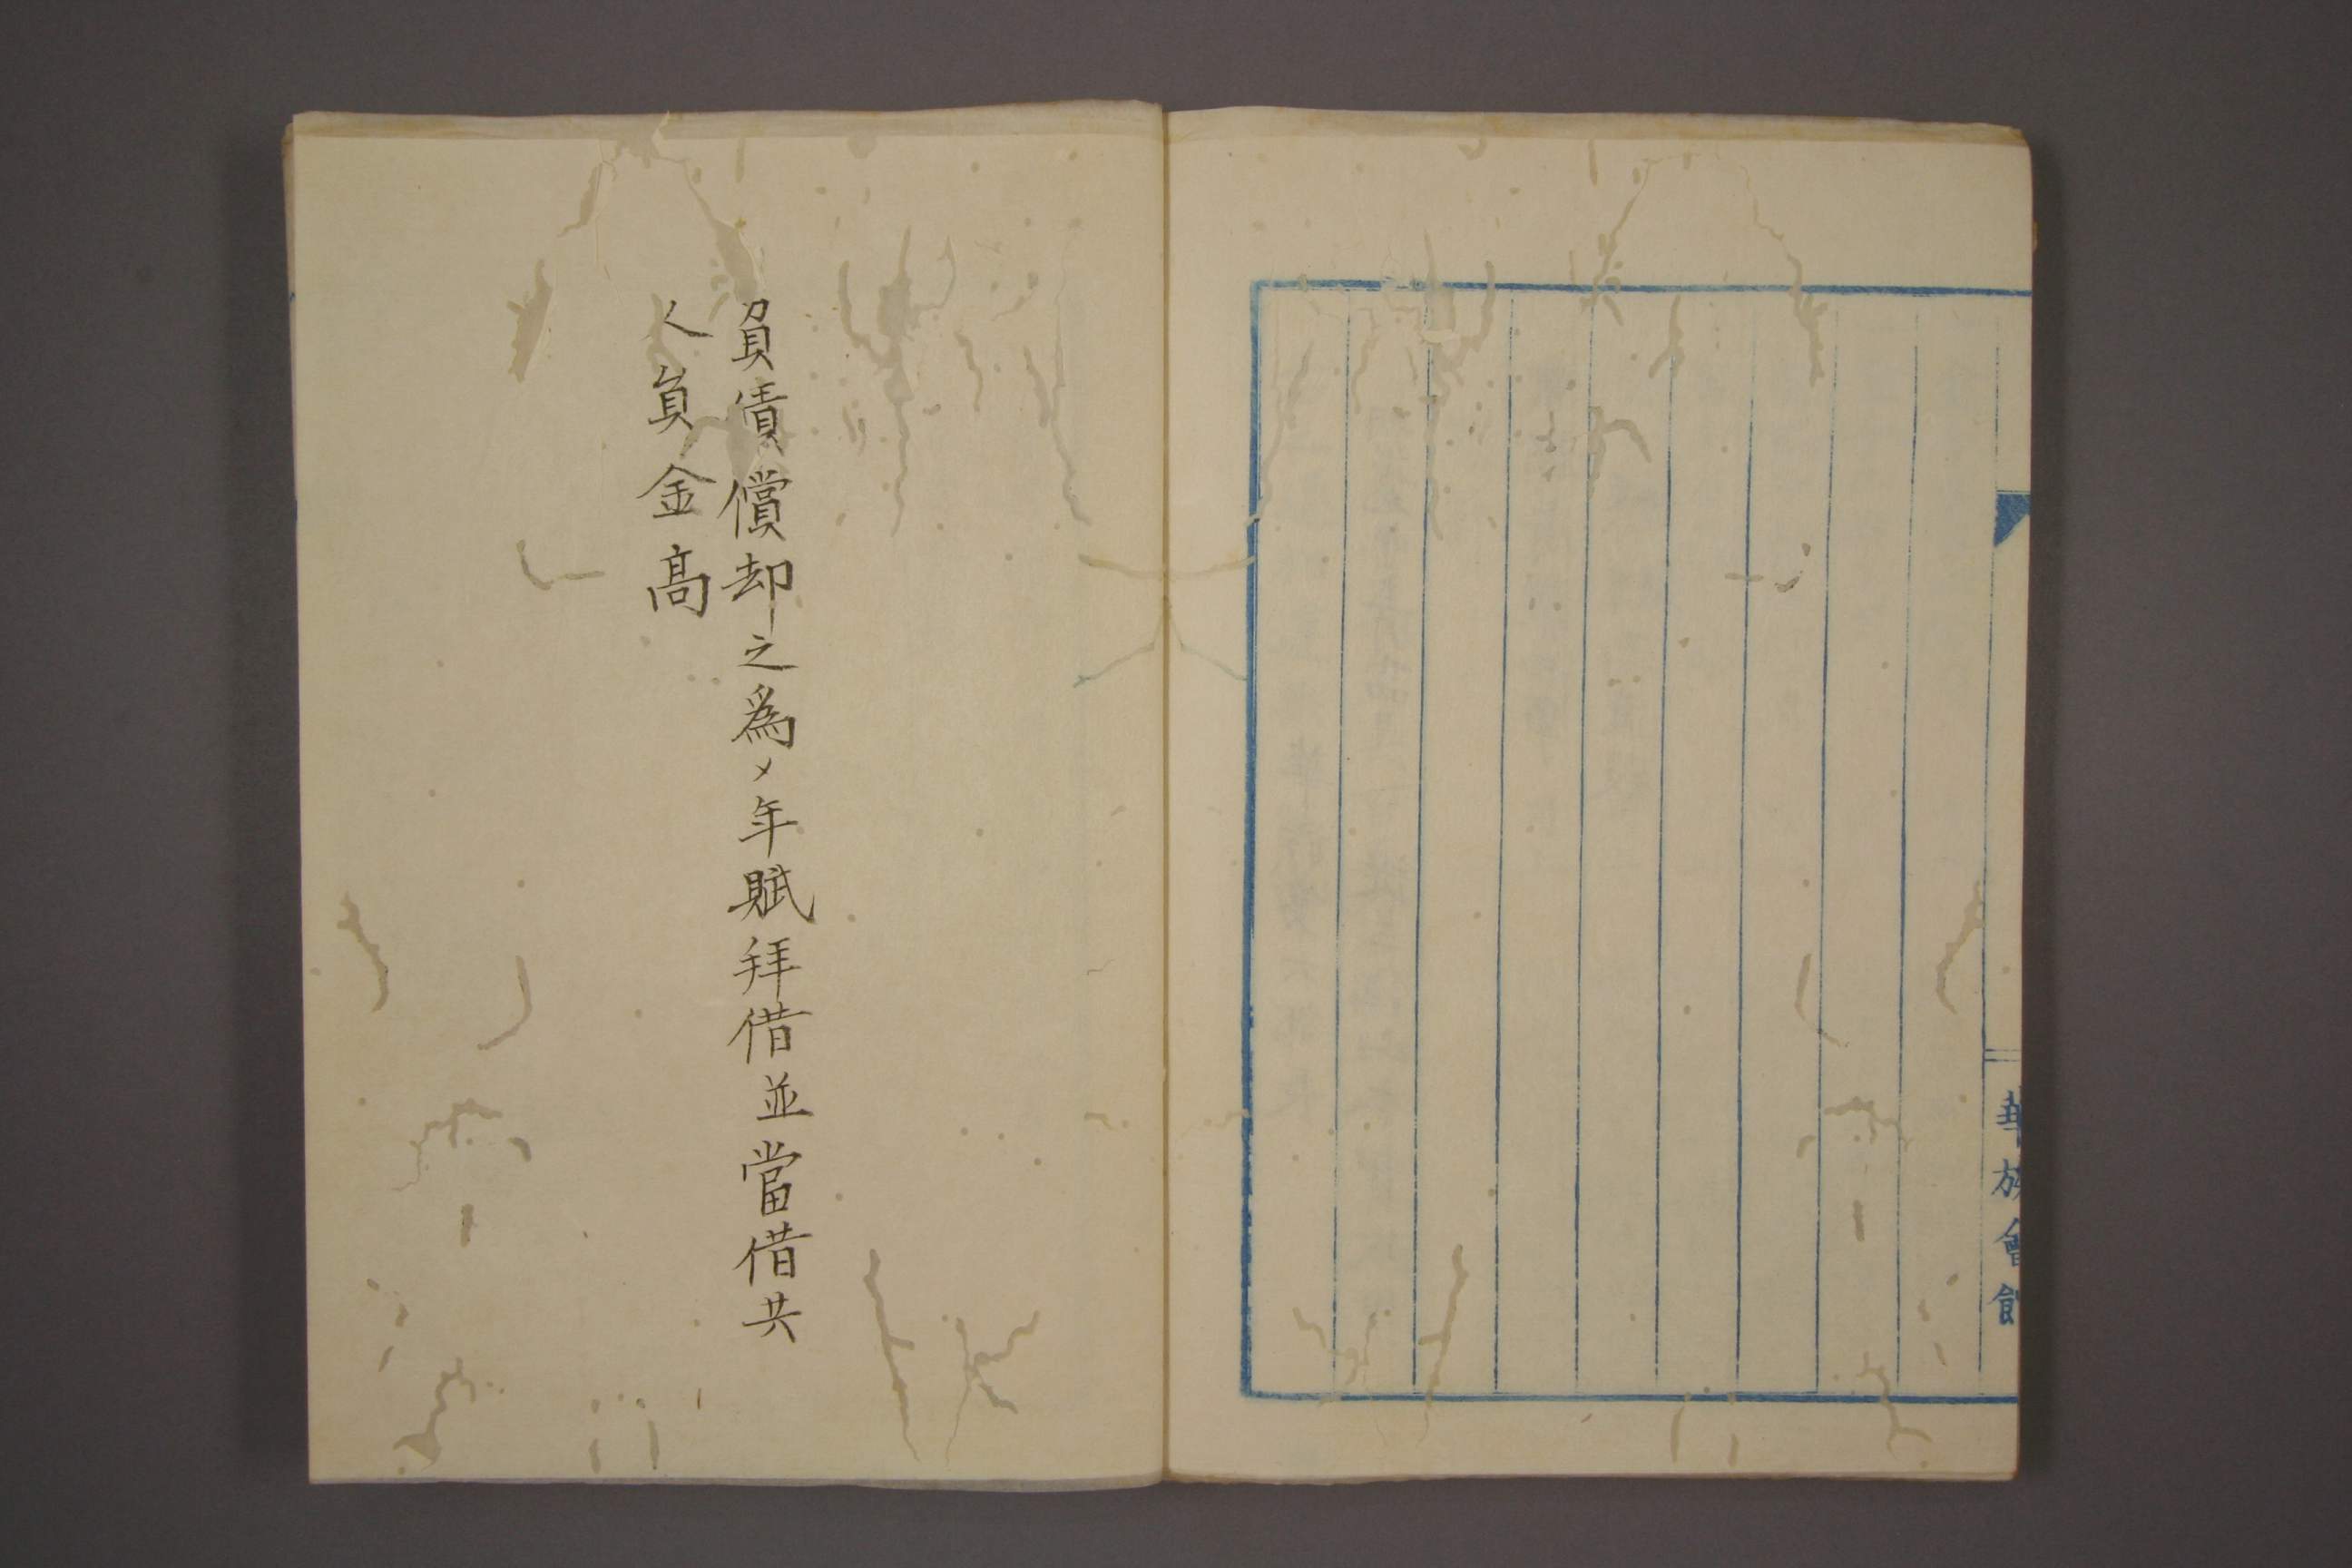 華族會館
負債償却之爲メ年賦拜借並當借共
人負金高